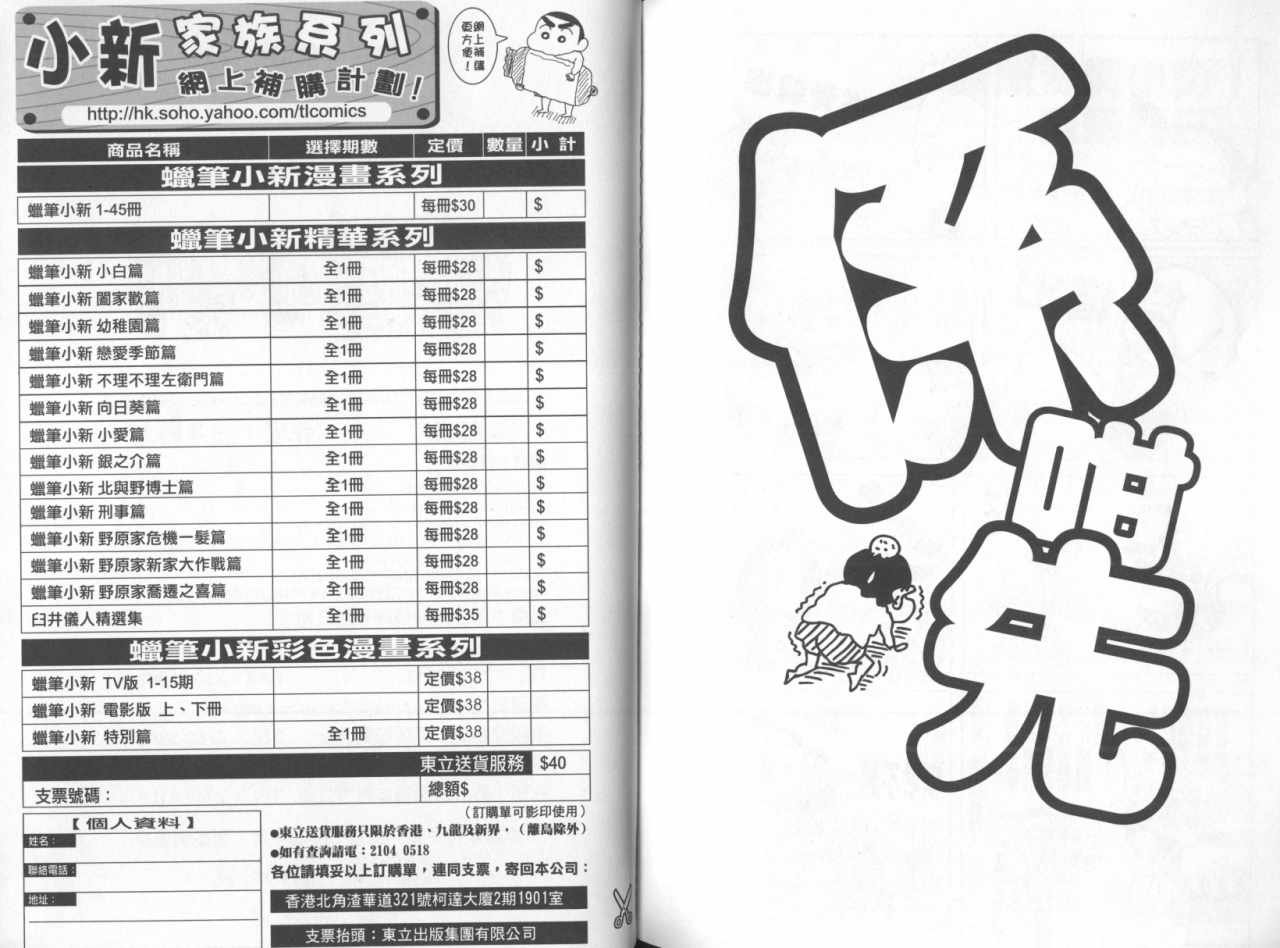 小新家族系列
網上補購計劃！
http://hk.soho.yahoo.com/tlcomics
網上補購
更方便！
商品名稱 選擇期數 定價 數量 小 計
蠟筆小新漫畫系列
蠟筆小新 1-45冊 每冊$30 $
蠟筆小新精華系列
蠟筆小新 小白篇 全1冊 每冊$28 $
蠟筆小新 闔家歡篇 全1冊 每冊$28 $
蠟筆小新 幼稚園篇 全1冊 每冊$28 $
蠟筆小新 戀愛季節篇 全1冊 每冊$28 $
蠟筆小新 不理不理左衛門篇 全1冊 每冊$28 $
蠟筆小新 向日葵篇 全1冊 每冊$28 $
蠟筆小新 小愛篇 全1冊 每冊$28 $
蠟筆小新 銀之介篇 全1冊 每冊$28 $
蠟筆小新 北與野博士篇 全1冊 每冊$28 $
蠟筆小新 刑事篇 全1冊 每冊$28 $
蠟筆小新 野原家危機一髮篇 全1冊 每冊$28 $
蠟筆小新 野原家新家大作戰篇 全1冊 每冊$28 $
蠟筆小新 野原家喬遷之喜篇 全1冊 每冊$28 $
臼井儀人精選集 全1冊 每冊$35 $
蠟筆小新彩色漫畫系列
蠟筆小新 TV版 1-15期 定價$38
蠟筆小新 電影版 上、下冊 定價$38
蠟筆小新 特別篇 全1冊 定價$38
東立送貨服務 $40
支票號碼： 總額$
（訂購單可影印使用）
【個人資料】
姓名：
聯絡電話：
地址：
●東立送貨服務只限於香港、九龍及新界，（離島除外）
●如有查詢請電：2104 0518
各位請填妥以上訂購單，連同支票，寄回本公司：
香港北角渣華道321號柯達大廈2期1901室
支票抬頭：東立出版集團有限公司
係
咁
先